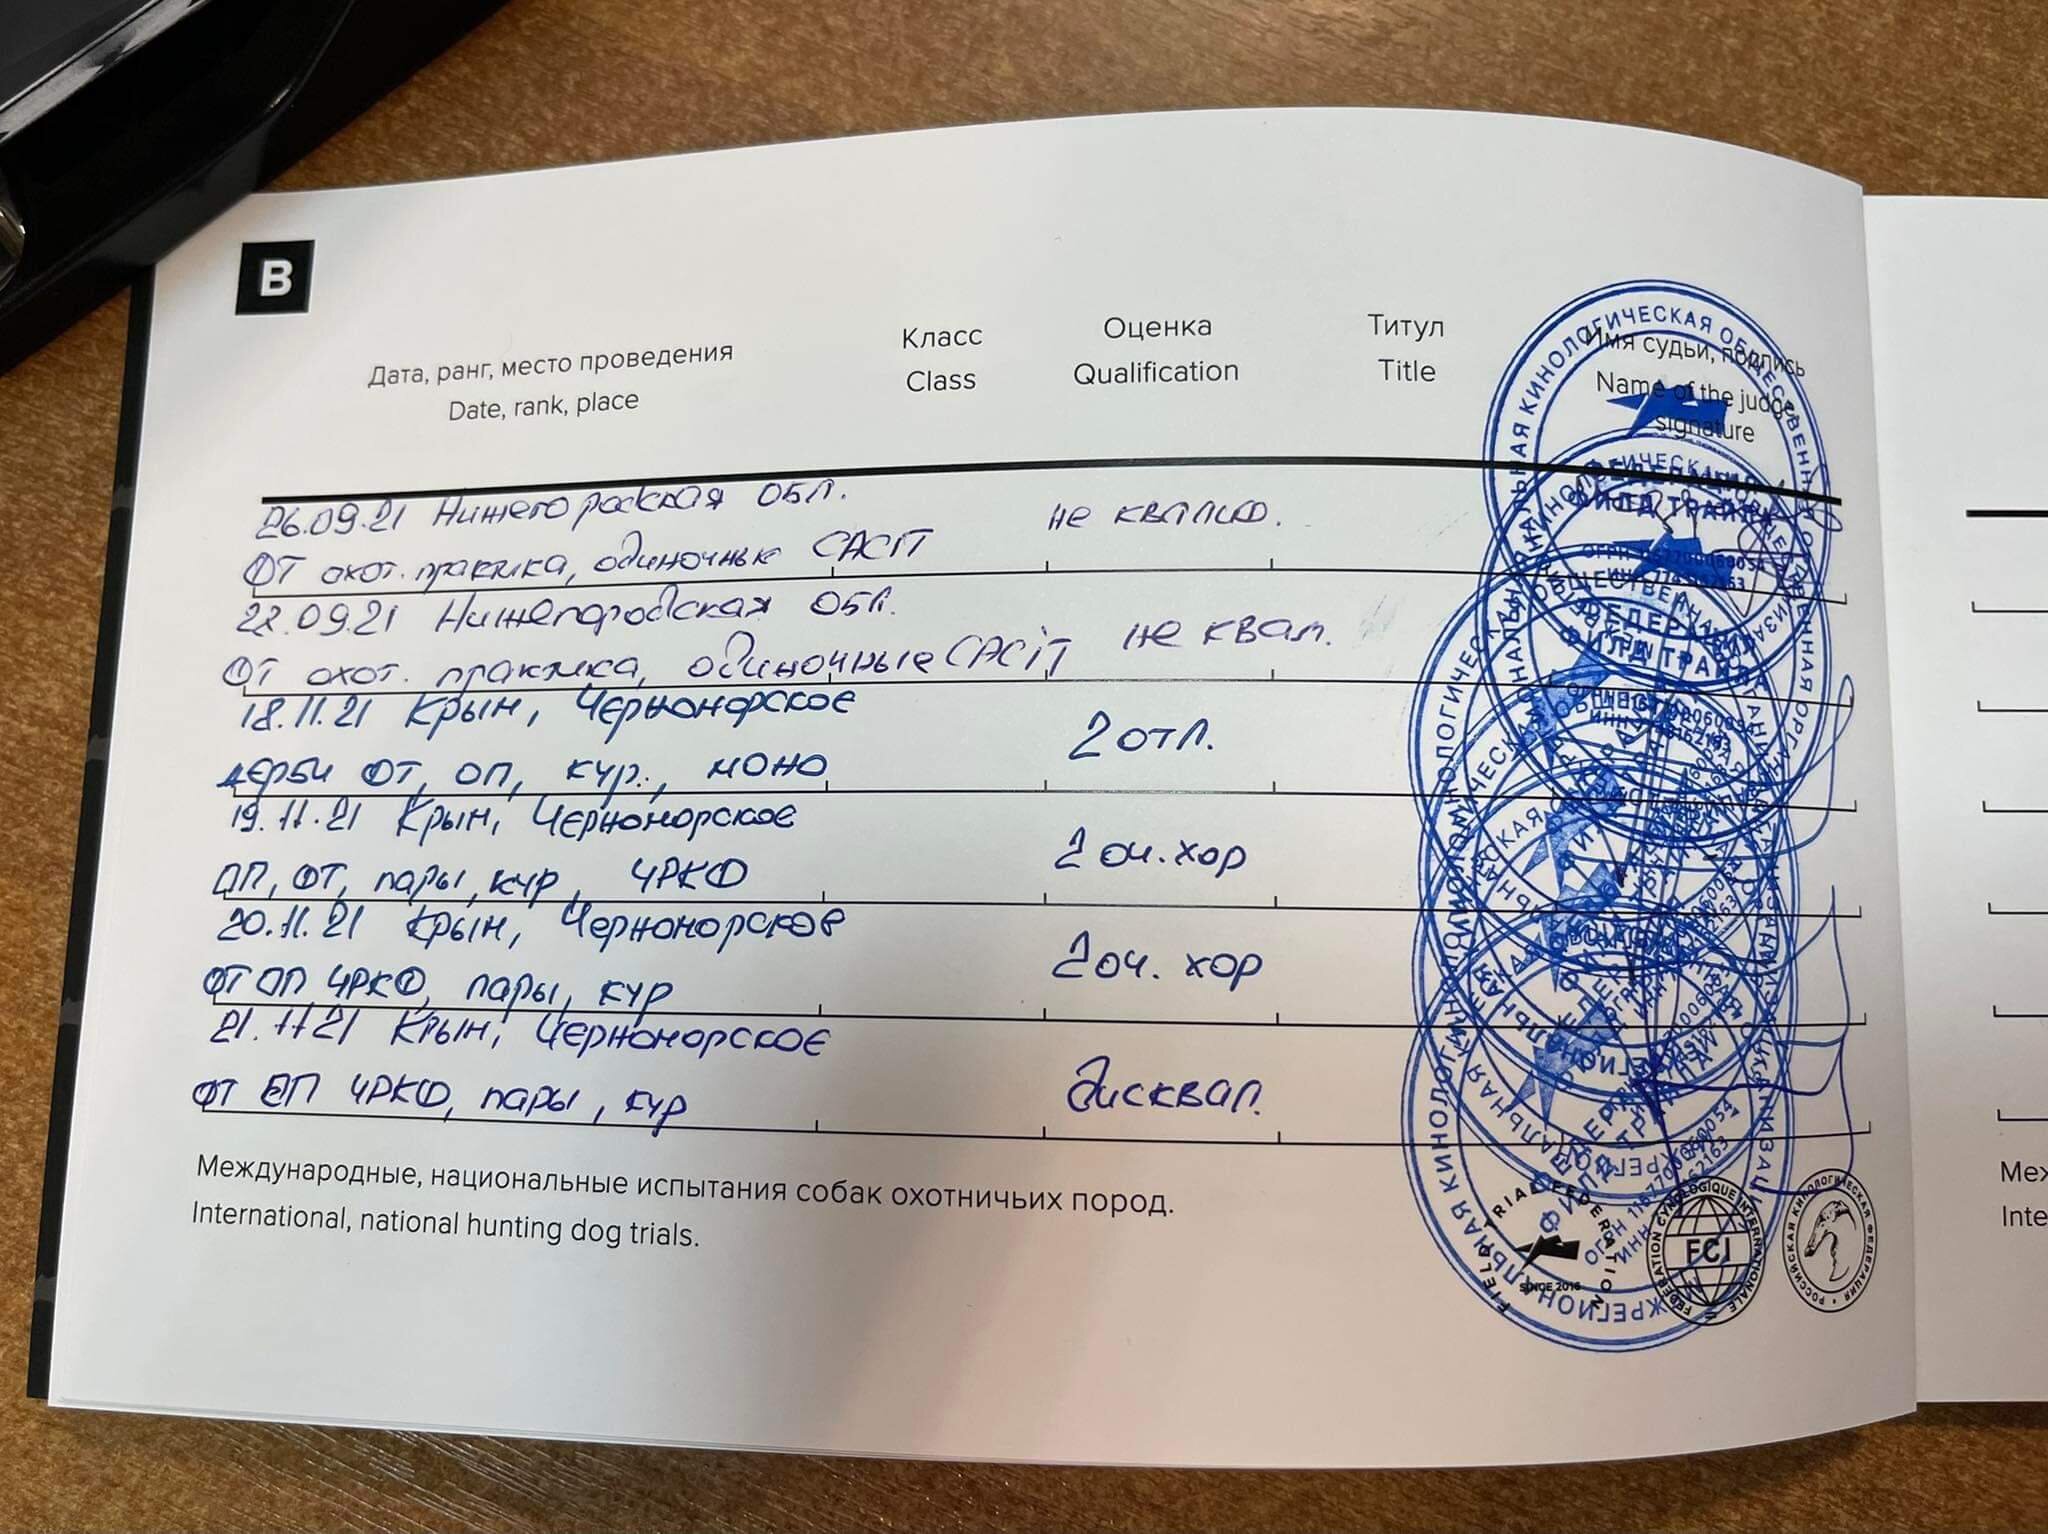 B
Дата, ранг, место проведения
Date, rank, place
Класс
Class
Оценка
Qualification
Титул
Title
Имя судьи, подпись
Name of the judge
signature
26.09.21 Нижегородская обл.
ОТ охот. практика, одиночные CACIT
не квалиф.
22.09.21 Нижегородская обл.
ОТ охот. практика, одиночные CACIT
не квал.
18.11.21 Крын, Черноморское
дерби ОТ, ОП, кур., моно
2 отл.
19.11.21 Крын, Черноморское
ОП, ОТ, пары, кур, ЧРКФ
2 оч. хор
20.11.21 Крын, Черноморское
ОТ ОП ЧРКФ, пары, кур
2 оч. хор
21.11 21 Крын, Черноморское
ОТ ОП ЧРКФ, пары, кур
дисквал.
Международные, национальные испытания собак охотничьих пород.
International, national hunting dog trials.
FIELD TRIAL FEDERATION
SINCE 2016
FEDERATION CYNOLOGIQUE INTERNATIONALE
FCI
РОССИЙСКАЯ КИНОЛОГИЧЕСКАЯ ФЕДЕРАЦИЯ
Меж
Inte